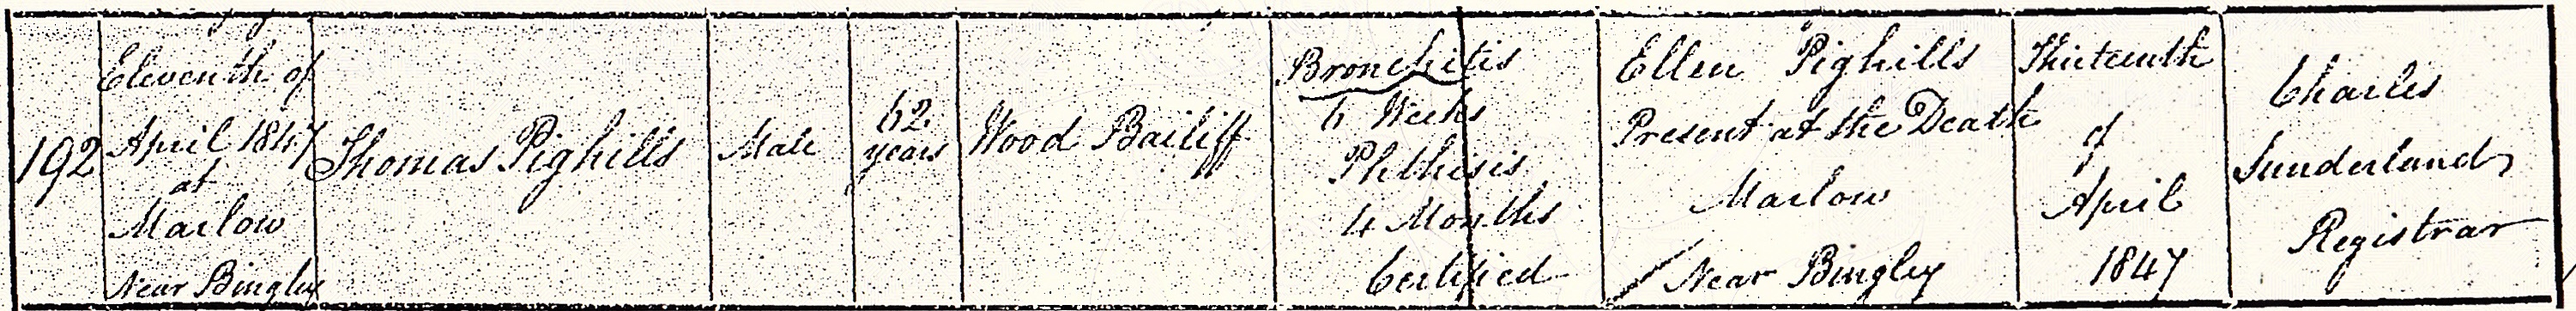 192
Eleventh of
April 1847
at
Marlow
Near Bingley
Thomas Pighills
Male
62
years
Wood Bailiff
Bronchitis
6 Weeks
Phthisis
4 Months
Certified
Ellen Pighills
Present at the Death
Marlow
Near Bingley
Thirteenth
of
April
1847
Charles
Sunderland
Registrar